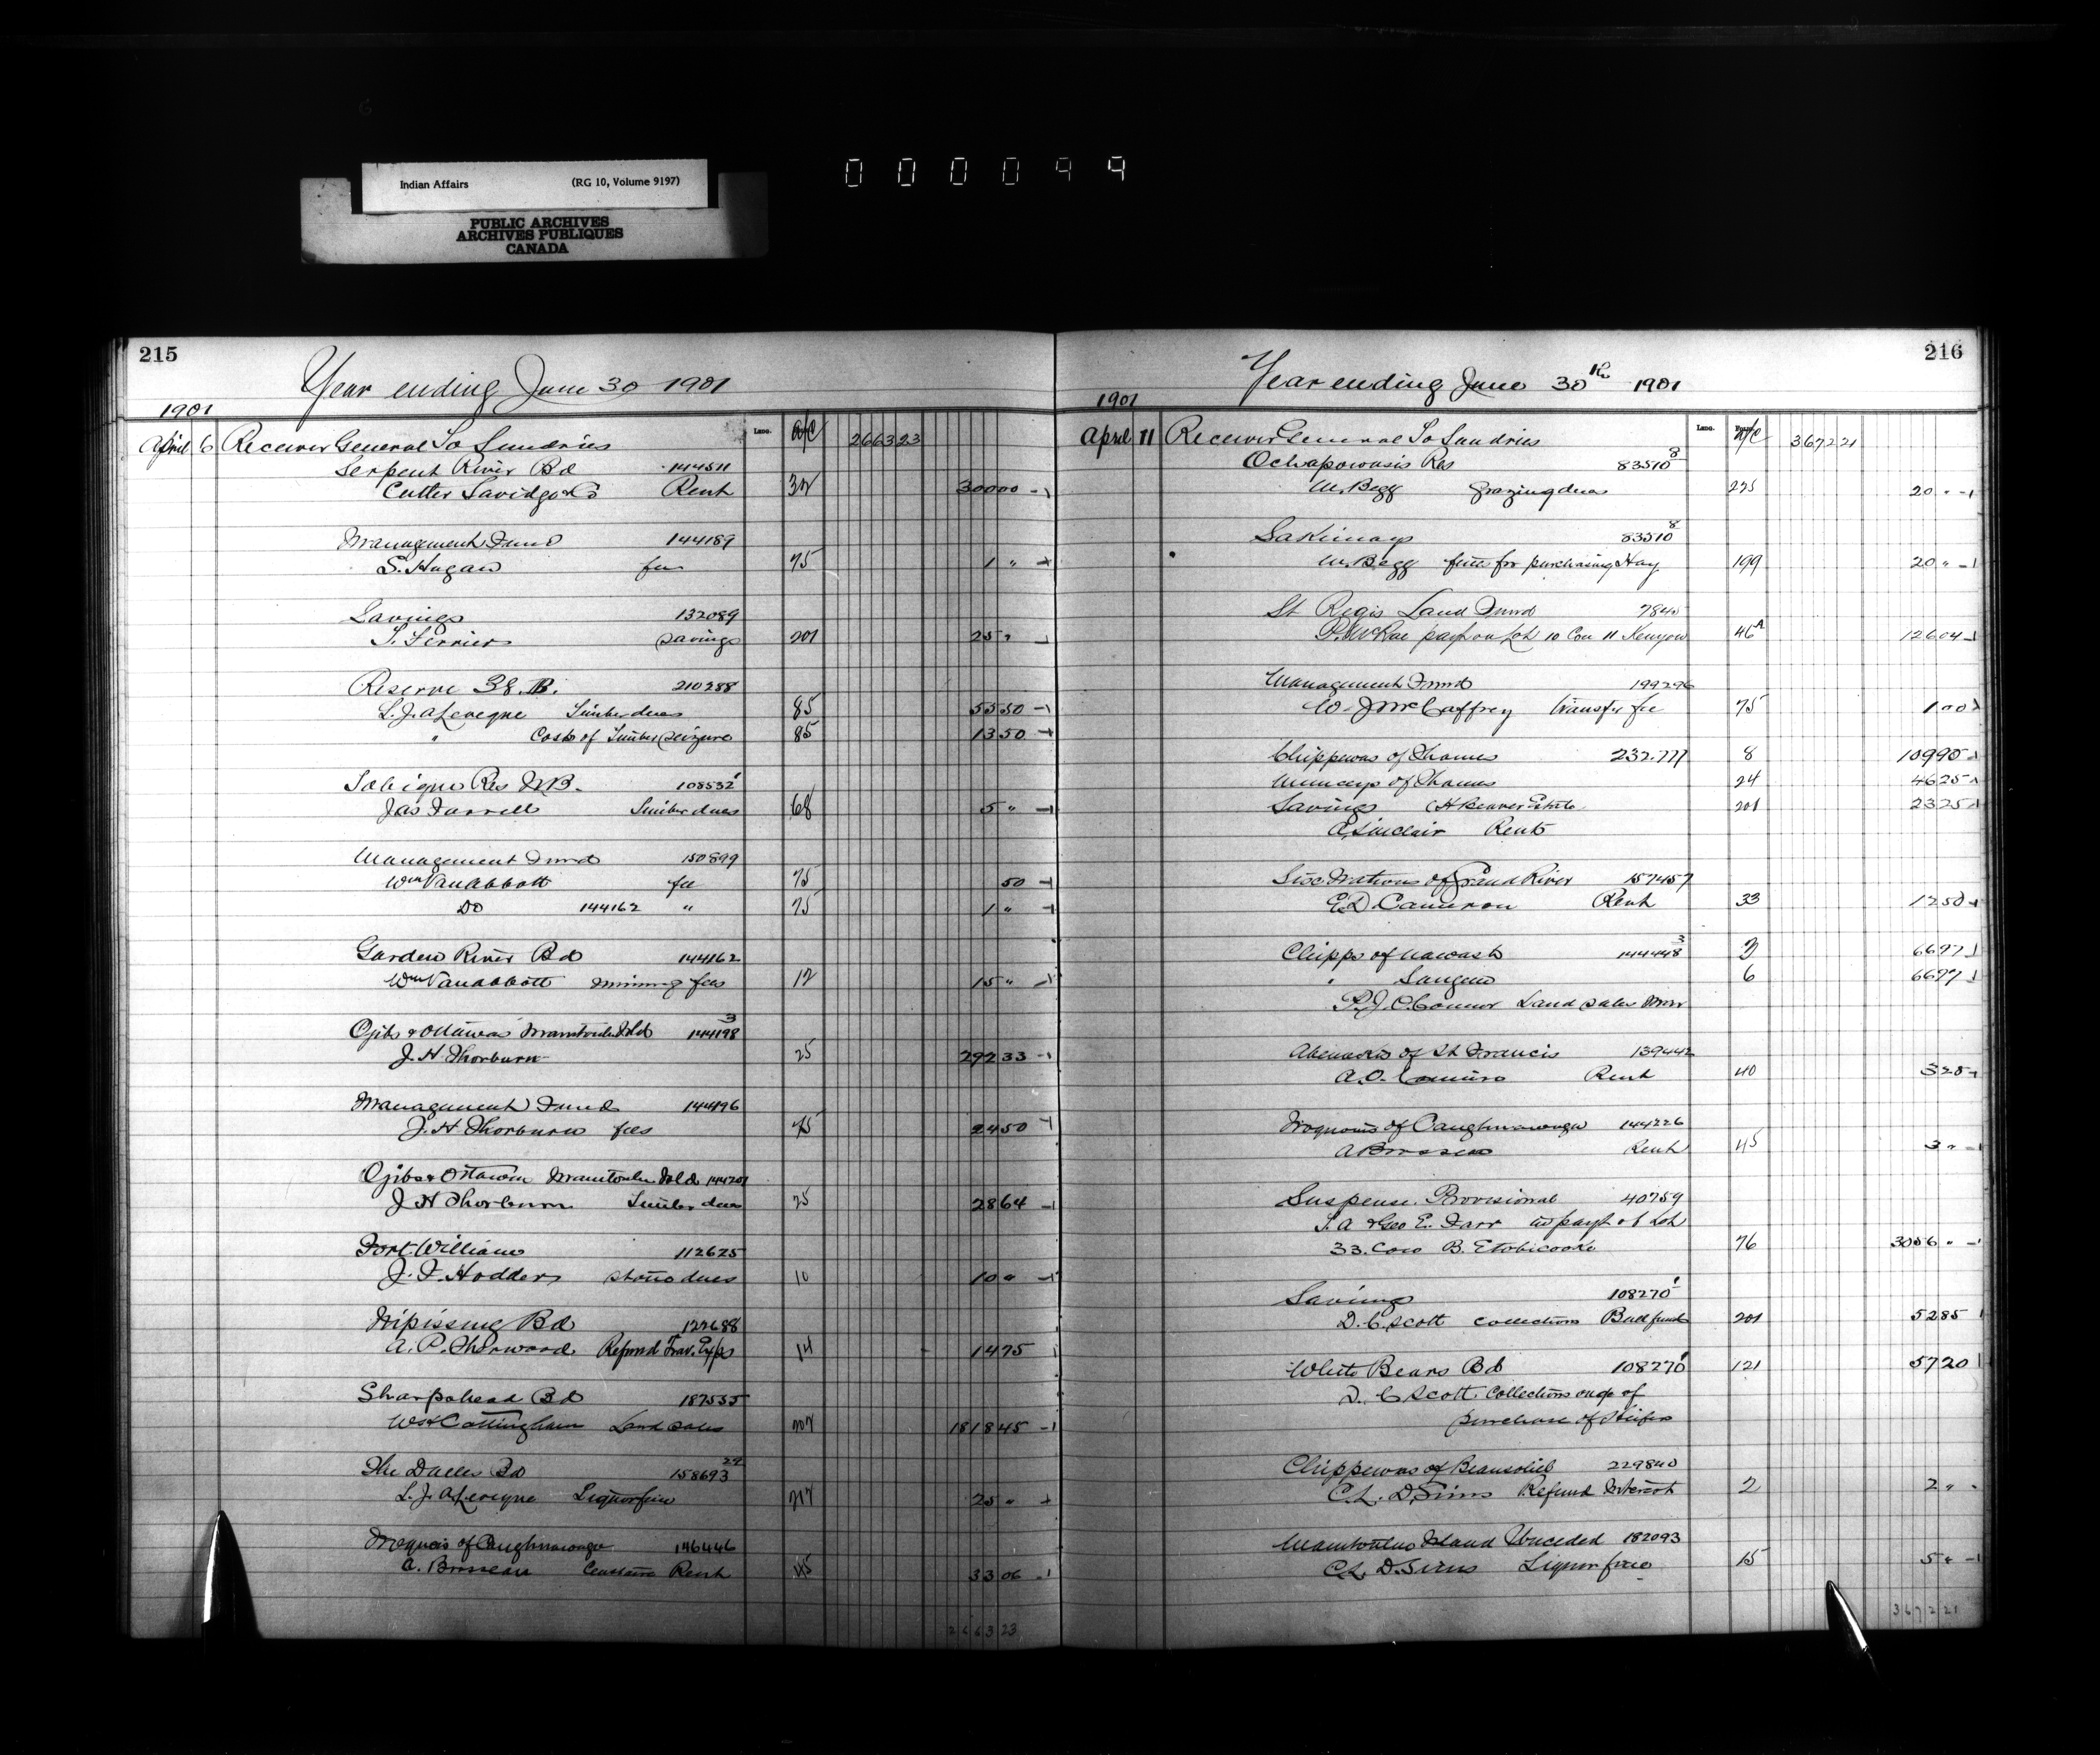 Indian Affairs (RG 10, Volume 9197)
PUBLIC ARCHIVES
ARCHIVES PUBLIQUES
CANADA
000099
215
Year ending June 30 1901
1901
Lino. a/c
April 6 Receiver General To Sundries 2663 23
Serpent River Bd 144511
Cutter Savidge & Co Rent 32 300 00
Management Fund 144189
S. Hagan fee 75 1 "
Savings 132089
T. Ferrier savings 201 25 "
Reserve 38. B. 210288
L. J. A. Leveque Timber dues 85 55 50
" Costs of Timber seizure 85 13 50
Tobique Res N.B. 108532 1
Jas Farrell Timber dues 68 5 "
Management Fund 150899
Wm Van Abbott fee 75 50
Do 144162 " 75 1 "
Garden River Bd 144162
Wm Van Abbott mining fees 12 15 "
Ojibs & Ottawas Manitoulin Isld 144198 3
J. H. Thorburn 25 292 33
Management Fund 144196
J. H. Thorburn fees 75 24 50
Ojibs & Ottawas Manitoulin Isld 144201
J H Thorburn Timber dues 25 28 64
Fort William 112625
J. F. Hodder stone dues 10 10 "
Nipissing Bd 122688
A. P. Refund Trav. Exps 14 14 75
Sharpshead Bd 187535
Cottingham Land sales 202 1818 45
The Dalles Bd 158693 29
L. J. A. Leveque Liquor fine 217 25 "
Iroquois of Caughnawaga 146446
A. Brosseau Rent 45 33 06
2663 23
216
Year ending June 30th 1901
1901
Lino. a/c
April 11 Receiver General To Sundries 3672 21
Ochapowasis Res 83510 8
W. Begg grazing dues 225 20 "
Sakimay 83510 8
W. Begg fines for purchasing Hay 199 20 "
St Regis Land Fund 7840
McRae payt on Lot 10 Con 11 Kenyon 46A 126 04
Management Fund 199296
W. J McCaffrey transfer fee 75 1 00
Chippewas of Thames 232.777 8 109 90
Munceys of Thames 24 46 25
Savings Beaver Estate 201 23 25
A. Sinclair Rents
Six Nations of Grand River 157457
E. D. Cameron Rent 33 12 50
Chipps of Nawash 144448 3 3 66 97
" Saugeen 6 66 97
P. J. O'Connor Land sales
Abenakis of St Francis 139442
A. O. Rent 40 3 25
Iroquois of Caughnawaga 144226
A Brosseau Rent 45 3 "
Suspense. Provisional 40759
T. A & Geo E. Farr in payt of Lot
33. Con B. Etobicoke 76 3056 "
Savings 108270 1
D. C. Scott collections Bull fund 201 52 85
White Bears Bd 108270 1 121 57 20
D. C Scott. Collections on a/c of
purchase of Heifers
Chippewas of Beausoliel 229840
C. L. D. Sims Refund Interest 2 2 "
Manitoulin Island Unceded 182093
C. L. D. Sims Liquor fine 15 5 "
3672 21